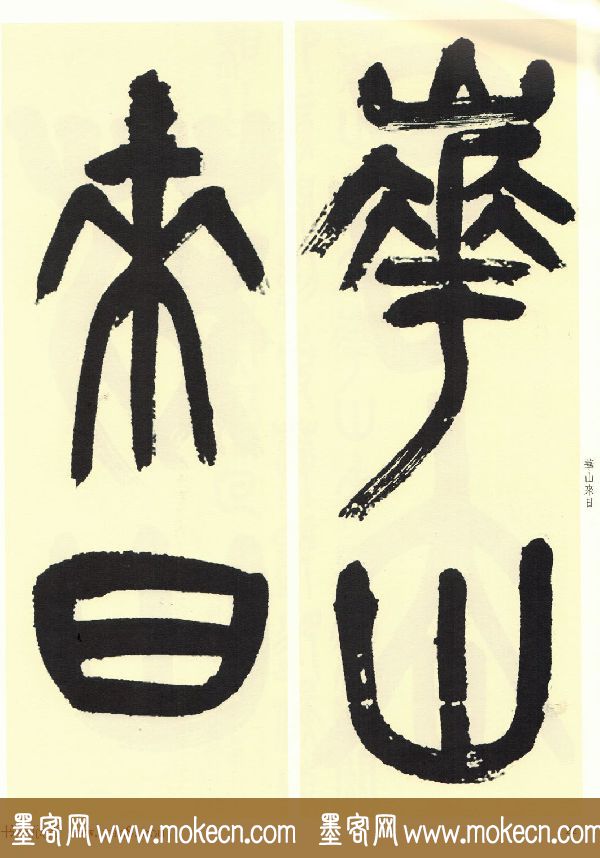 華山
来日
華山来日
墨客网 www.mokecn.com 墨客网 www.mokecn.com